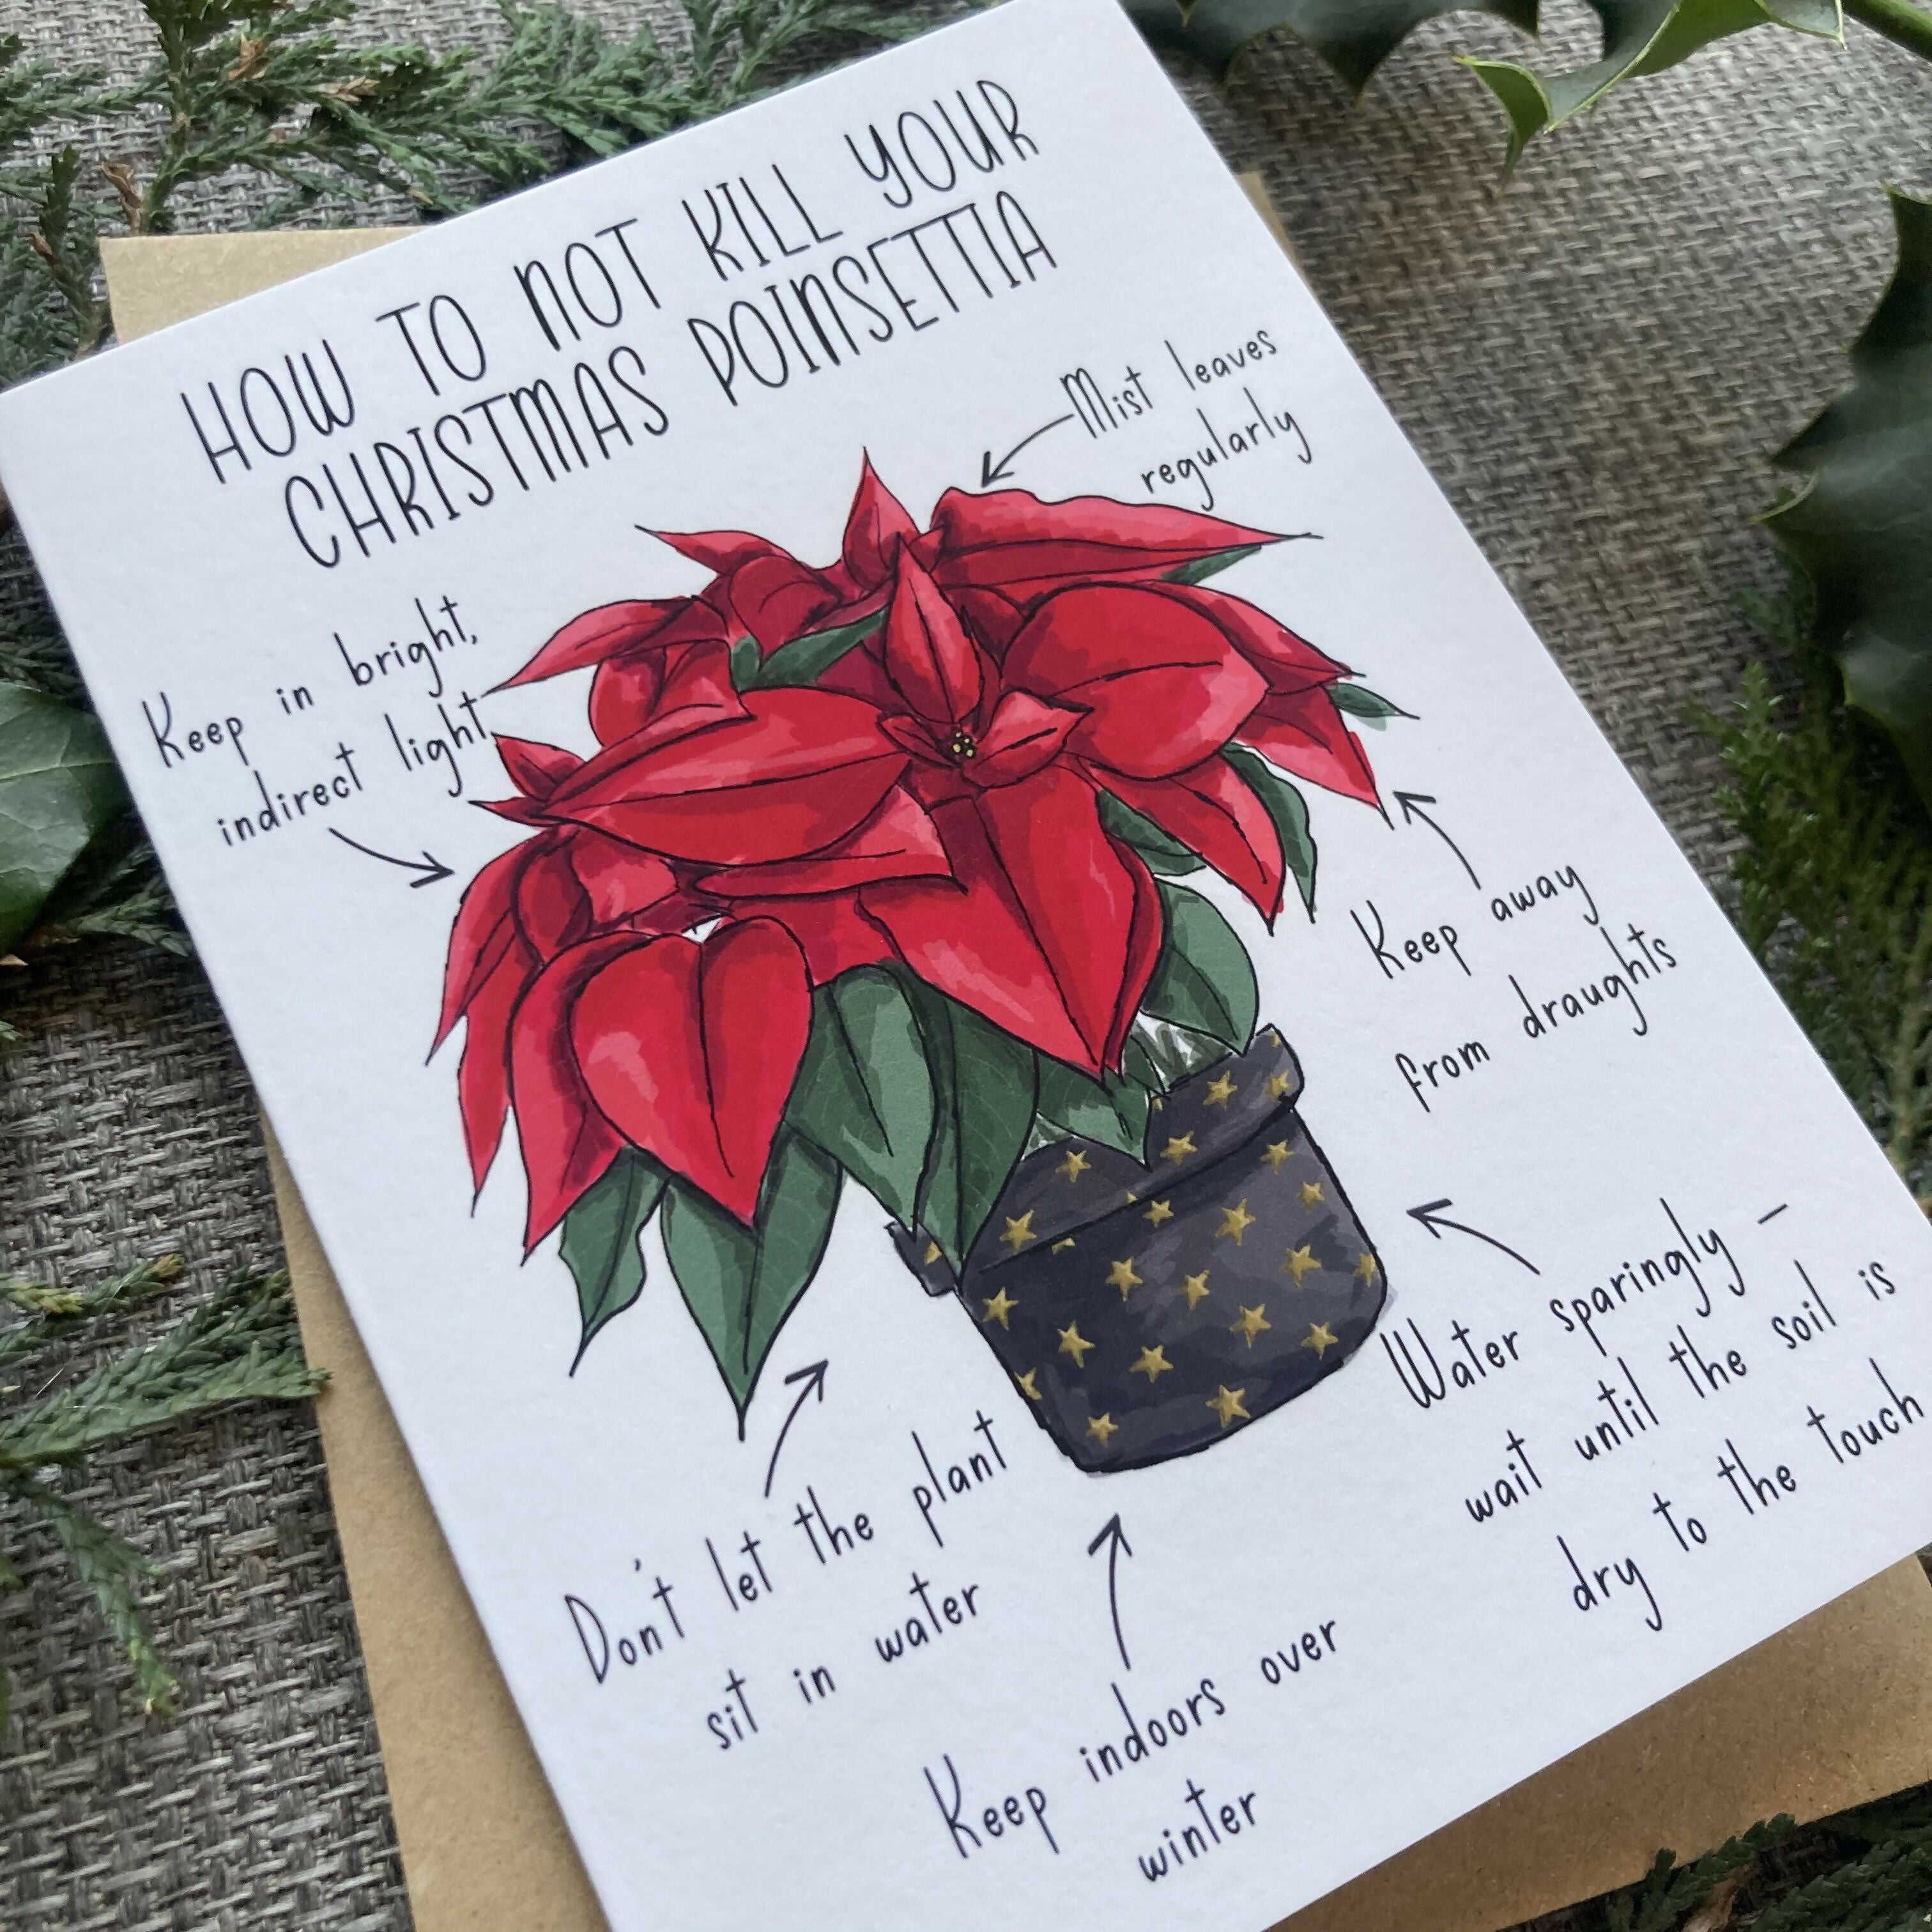 HOW TO NOT KILL YOUR
CHRISTMAS POINSETTIA
Mist leaves
regularly
Keep in bright,
indirect light
Keep away
from draughts
Water sparingly –
wait until the soil is
dry to the touch
Don't let the plant
sit in water
Keep indoors over
winter